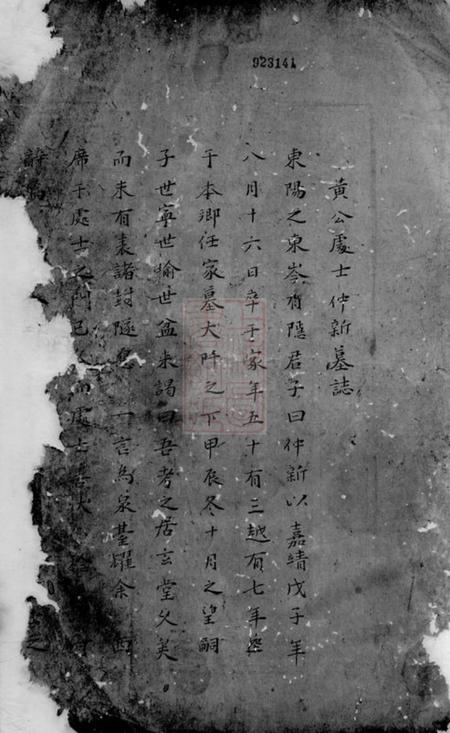 923141
黃公處士仲新墓誌
東陽之東岑有隱君子曰仲新以嘉靖戊子年
八月十六日卒于家年五十有三越有七年塟
于本鄉任家墓大阡之下甲辰冬十月之望嗣
子世寧世愉世盆来謁曰吾考之居玄堂久矣
而未有表諸封隧 一言為泉臺耀余 西
席于處士之門已 而處士
辭
之